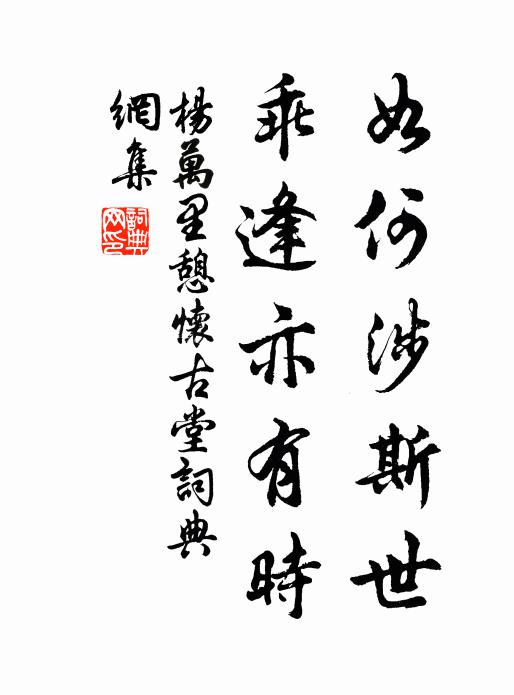 如何涉斯世
乖逢亦有時
楊萬里憩懷古堂詞典
網集
詞典
网印